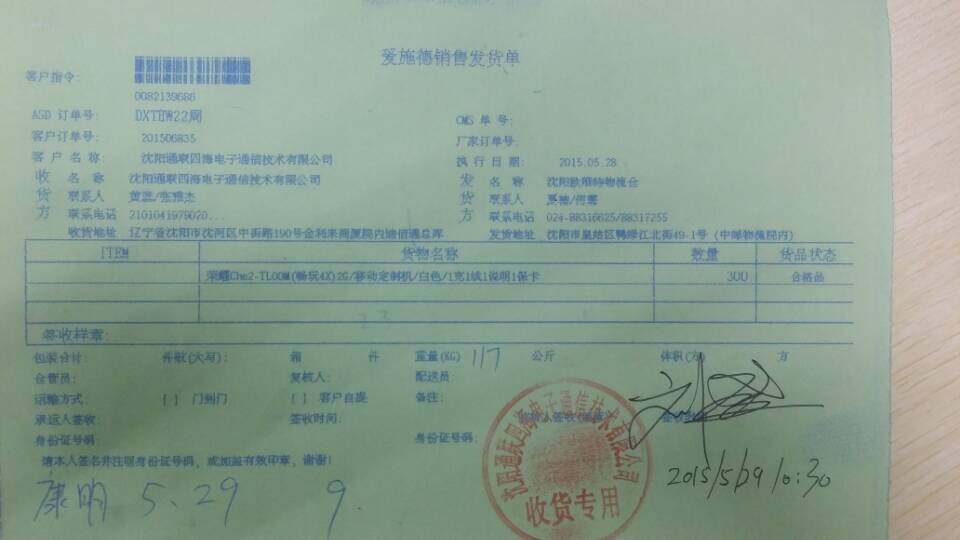 爱施德销售发货单
客户指令:
0082139686
ASD 订单号: DXTEW22周 CMS 单号:
客户订单号: 201506835 厂家订单号:
客户名称: 沈阳通联四海电子通信技术有限公司 执行日期: 2015.05.28
收 名称 沈阳通联四海电子通信技术有限公司 发 名称 沈阳欧维特物流仓
货 联系人 黄蕊/张雅杰 货 联系人
方 联系电话 2101041979020... 方 联系电话 024-88316625/88317255
收货地址 辽宁省沈阳市沈河区中街路190号金利来商厦院内 发货地址 沈阳市皇姑区鸭绿江北街49-1号(中邮物流院内)
ITEM 货物名称 数量 货品状态
荣耀Che2-TL00M(畅玩4X)2G/移动定制机/白色/1充1线1说明1保卡 300 合格品
签收样章:
包装合计: 件数(大写): 箱 件 重量(KG) 117 公斤 体积(方) 方
仓管员: 复核人: 配送员:
运输方式: [ ] 门到门 [ ] 客户自提 备注:
承运人签收: 签收时间:
身份证号码: 身份证号码:
请本人签名并注明身份证号码, 或加盖有效印章, 谢谢!
沈阳通联四海电子通信技术有限公司
收货专用
2015/5/29 10:30
康明 5.29 9.